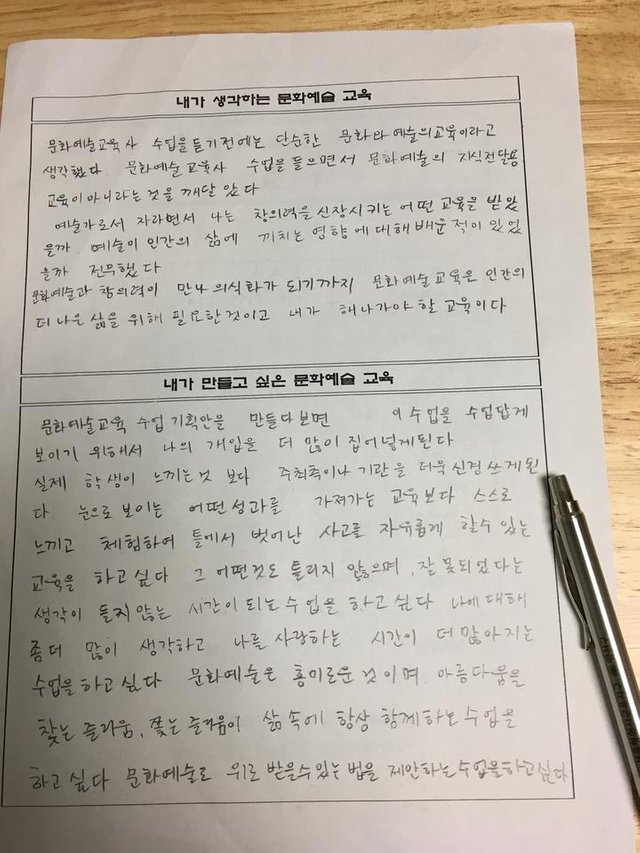 내가 생각하는 문화예술 교육
문화예술교육사 수업을듣기전에는 단순한 문화와 예술의교육이라고
생각했다. 문화예술교육사 수업을 들으면서 문화예술의 지식전달용
교육이아니라는것을 깨달았다
예술가로서 자라면서 나는 창의력을 신장시키는 어떤 교육을 받았
을까. 예술이 인간의 삶에 끼치는 영향에대해 배운적이 있었
을까 전무했다
문화예술과 창의력이 만나 의식화가 되기까지 문화예술교육은 인간의
더 나은 삶을 위해 필요한것이고 내가 해나가야 할 교육이다
내가 만들고 싶은 문화예술 교육
문화예술교육 수업 기획안을 만들다보면 이 수업을 수업답게
보이기 위해서 나의 개입을 더 많이 집어넣게된다
실제 학생이 느끼는것 보다 주최측이나 기관을 더욱 신경쓰게된
다 눈으로 보이는 어떤성과를 가져가는 교육보다 스스로
느끼고 체험하여 틀에서 벗어난 사고를 자유롭게 할수있는
교육을 하고싶다 그 어떤것도 틀리지 않으며, 잘못되었다는
생각이 들지않는 시간이 되는수업을 하고싶다 나에대해
좀더 많이 생각하고 나를 사랑하는 시간이 더 많아지는
수업을하고싶다 문화예술은 흥미로운것이며 아름다움을
찾는 즐거움, 쫓는즐거움이 삶속에 항상 함께하는 수업을
하고싶다 문화예술로 위로 받을수있는 법을 제안하는수업을하고싶다